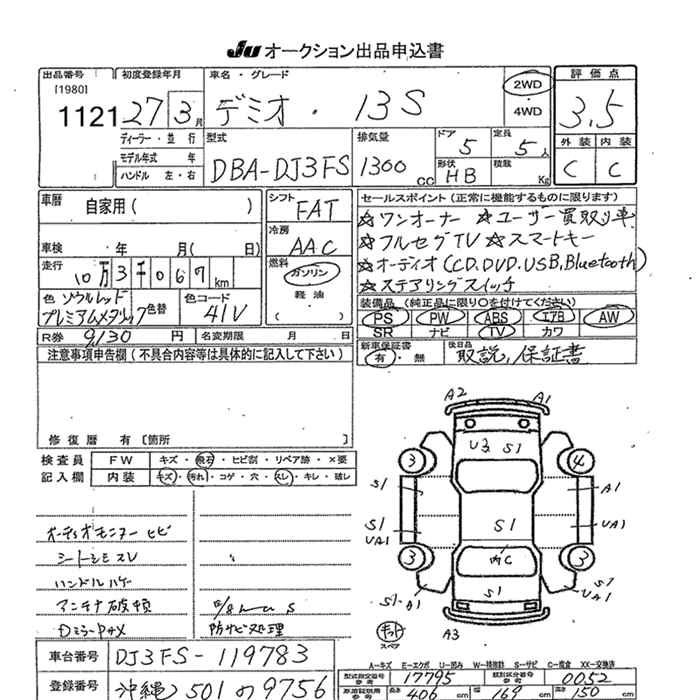 JU オークション出品申込書
出品番号 初度登録年月 車名・グレード 評価点
[1980] 1121 27 3月 デミオ・13S 2WD 4WD 3.5
ディーラー・並行 型式 排気量 ドア 定員 外装 内装
モデル年式 年 DBA-DJ3FS 1300CC 5 5人 C C
ハンドル 左・右 形状 HB 積載 Kg
車歴 自家用( ) シフト FAT セールスポイント(正常に機能するものに限ります)
☆ワンオーナー ☆ユーザー買取り車
車検 年 月( 日) 冷房 AAC ☆フルセグTV ☆スマートキー
走行 10万3千067km 燃料 ガソリン 軽油 ( ) ☆オーディオ(CD.DVD.USB,Bluetooth)
☆ステアリングスイッチ
色 ソウルレッドプレミアムメタリック 色替 色コード 41V 装備品(純正品に限り○を付けてください)
PS PW ABS エアB AW
SR ナビ TV カワ
R券 9/30 円 名変期限 月 日 新車保証書 有・無 後日品 取説,保証書
注意事項申告欄(不具合内容等は具体的に記入して下さい)
修復歴 有[箇所 ]
検査員 FW キズ・飛石・ヒビ割・リペア跡・×要
記入欄 内装 キズ・汚れ・コゲ・穴・スレ・キレ・破レ
A2 A1
U3 S1
3 4
S1 A1
S1 UA1 S1 UA1
3 内C 3
S1-A1 S1 S1 UA1
A3
キット スペア
オーディオモニター ヒビ
シートシミ スレ
ハンドルハゲ
アンテナ破損
防サビ処理
A-キズ E-エクボ U-凹み W-補修跡 S-サビ C-腐食 XX-交換済
車台番号 DJ3FS-119783
型式指定番号 参考 17795 類別区分番号 参考 0052
登録番号 沖縄 501 の 9756
車両諸元 参考 長さ 406cm 幅 169cm 高さ 150cm